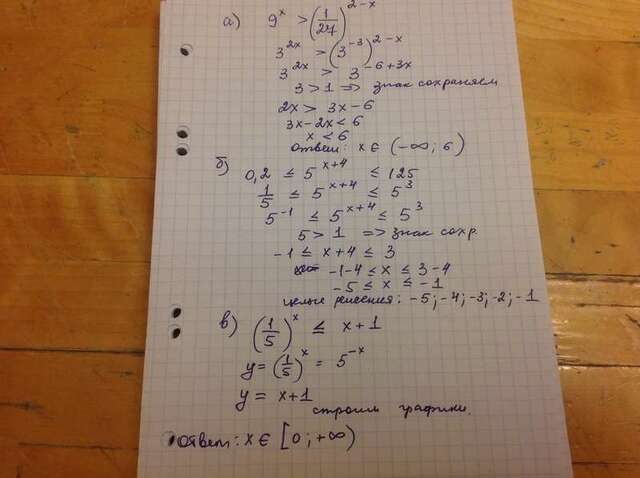 а) 9^x > (1/27)^(2-x)
3^(2x) > (3^(-3))^(2-x)
3^(2x) > 3^(-6+3x)
3 > 1 => знак сохраняем
2x > 3x - 6
3x - 2x < 6
x < 6
ответ: x ∈ (-∞; 6)
б) 0,2 ≤ 5^(x+4) ≤ 125
1/5 ≤ 5^(x+4) ≤ 5^3
5^(-1) ≤ 5^(x+4) ≤ 5^3
5 > 1 => знак сохр.
-1 ≤ x + 4 ≤ 3
-1-4 ≤ x ≤ 3-4
-5 ≤ x ≤ -1
целые решения: -5; -4; -3; -2; -1
в) (1/5)^x ≤ x + 1
y = (1/5)^x = 5^(-x)
y = x+1
строим графики.
ответ: x ∈ [0; +∞)